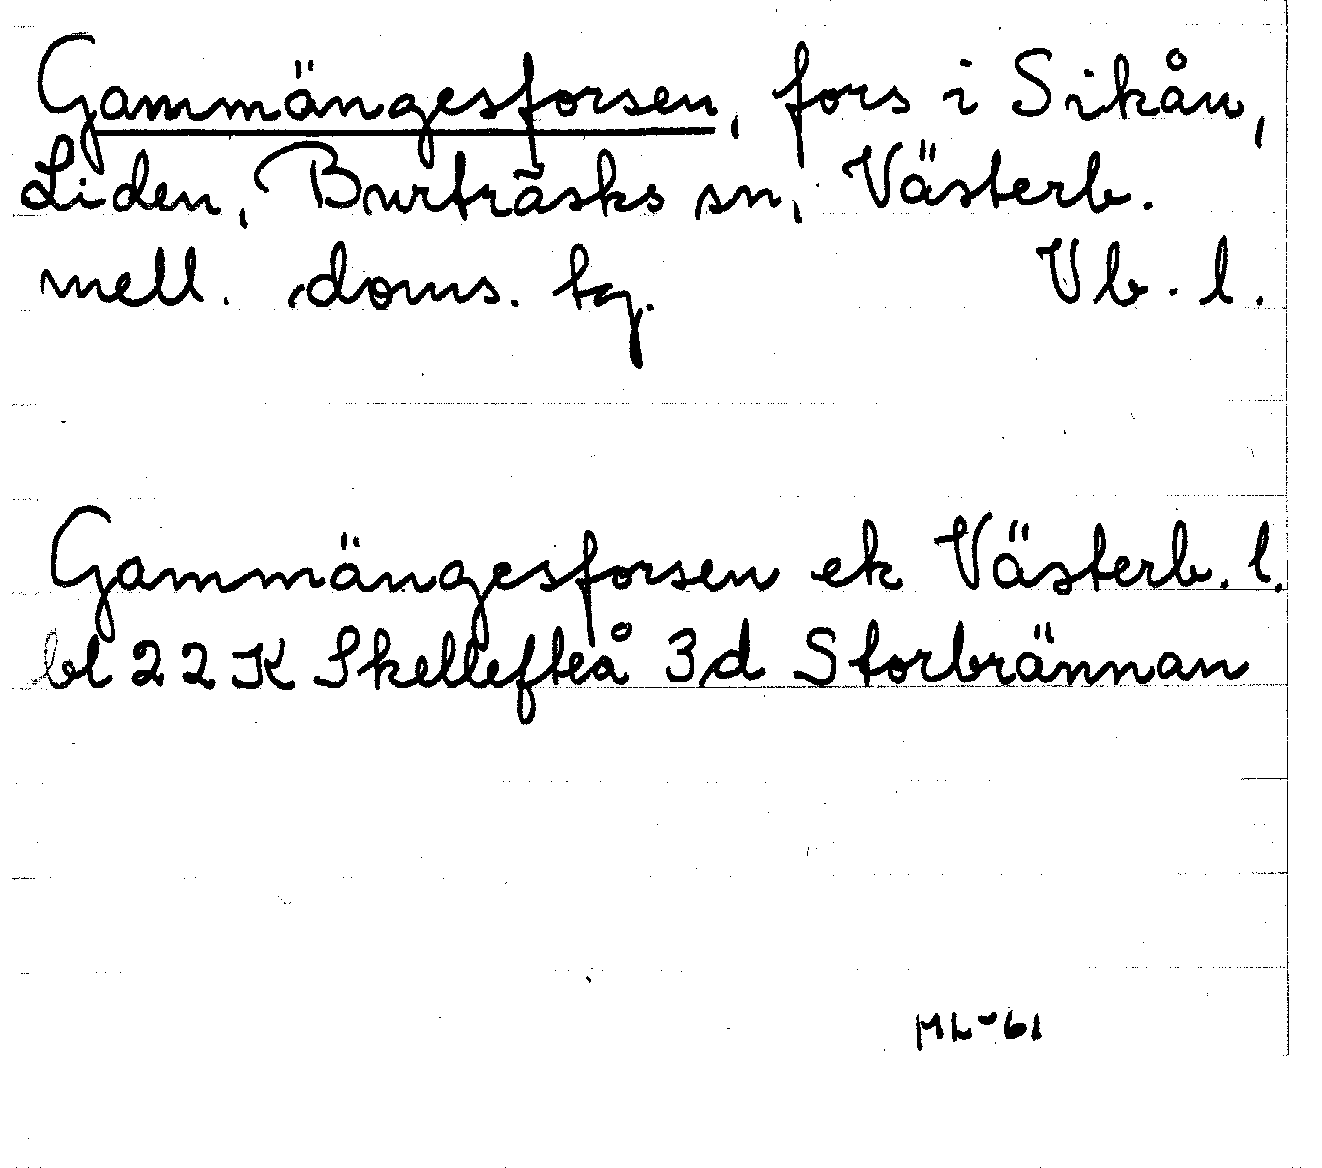 Gammängesforsen, fors i Sikån,
Liden, Burträsks sn, Västerb.
mell. doms. tg. Vb. l.
Gammängesforsen ek Västerb. l.
bl 22 K Skellefteå 3d Storbrännan
ML-61